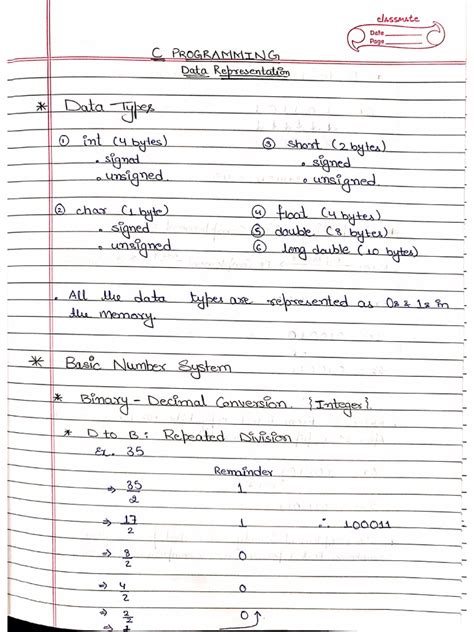 classmate
Date
Page
C PROGRAMMING
Data Representation
* Data Types
① int (4 bytes)
• signed
• unsigned
③ short (2 bytes)
• signed
• unsigned
② char (1 byte)
• signed
• unsigned
④ float (4 bytes)
⑤ double (8 bytes)
⑥ long double (10 bytes)
• All the data types are represented as 0s & 1s in
the memory.
* Basic Number System
* Binary - Decimal Conversion {Integer}.
* D to B : Repeated Division
Ex. 35
Remainder
⇒ 35/2 1
⇒ 17/2 1 ∴ 100011
⇒ 8/2 0
⇒ 4/2 0
⇒ 2/2 0
⇒ 1